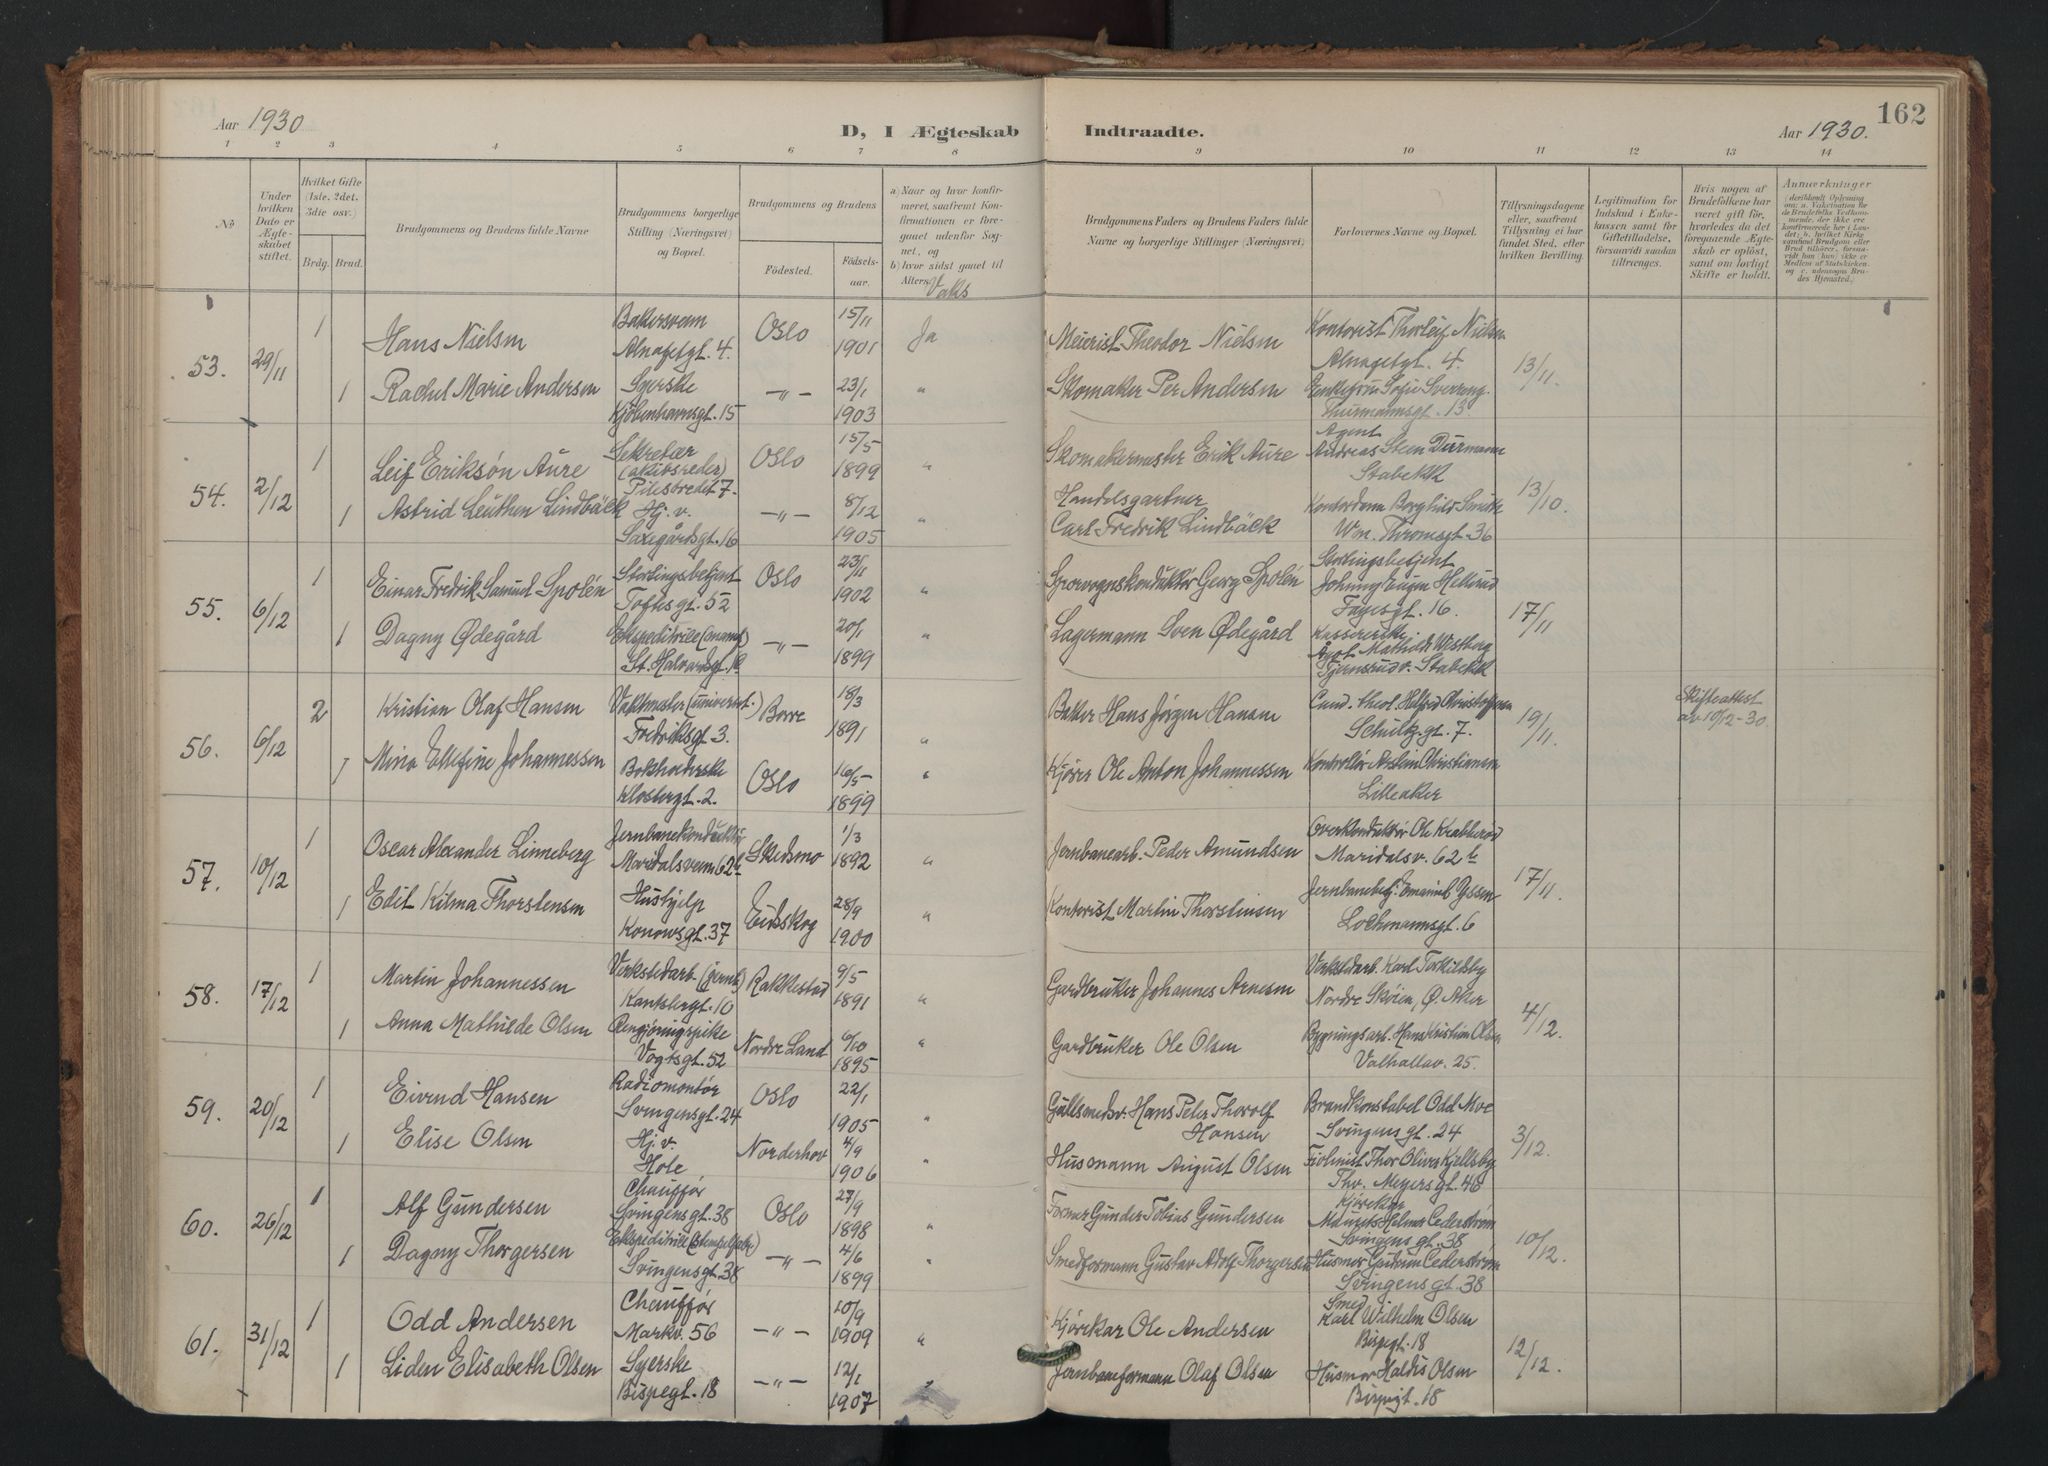 162
Aar 1930
D, I Ægteskab
Indtraadte.
Aar 1930.
1 2 3 4 5 6 7 8 9 10 11 12 13 14
No
Under hvilken Dato er Ægteskabet stiftet.
Hvilket Gifte (1ste, 2det, 3die osv.)
Brdg. Brud.
Brudgommens og Brudens fulde Navne
Brudgommens borgerlige Stilling (Næringsvei) og Bopæl.
Brudgommens og Brudens
Fødested.
Fødselsaar.
a) Naar og hvor konfirmeret, saafremt Konfirmationen er foregaaet udenfor Sognet, og
b) hvor sidst gaaet til Alters.
Vaks
Brudgommens Faders og Brudens Faders fulde Navne og borgerlige Stillinger (Næringsvei)
Forlovernes Navne og Bopæl.
Tillysningsdagene eller, saafremt Tillysning ei har fundet Sted, efter hvilken Bevilling.
Legitimation for Indskud i Enkekassen samt for Giftetilladelse, forsaavidt saadan tiltrænges.
Hvis nogen af Brudefolkene har været gift før, hvorledes da det foregaaende Ægteskab er opløst, samt om lovligt Skifte er holdt.
Anmerkninger
53. 29/11 1 Hans Nielsen Bakersvenn Oslo 15/11 1901 Ja Meierist Theodor Nielsen Kontorist Thorleif Nielsen 13/11
Alnafetgt. 4. Alnafetgt. 4.
1 Rachel Marie Andersen Syerske —„— 23/1 1903 „ Skomaker Per Andersen Enkefru Sofie
Kjøbenhavnsgt. 15 Thurmannsgt. 13
54. 2/12 1 Leif Eriksøn Aure Sekretær Oslo 15/5 1899 „ Skomakermester Erik Aure Agent 13/10.
Pilestredet 7. Andreas Steen
Stabekk
1 Astrid Leuthen Lindbäck Hj. v. —„— 8/12 1905 „ Handelsgartner Kontordame Borghild Smith
Saxegårdsgt. 16 Carl Fredrik Lindbäck Wm. Thranesgt. 36
55. 6/12 1 Einar Fredrik Samuel Spolén Stortingsbetjent Oslo 23/11 1902 „ Sporvognskonduktør Georg Spolén Stortingsbetjent 17/11
Toftesgt. 52 Johnny Eugen Hellerud
Fagesgt. 16.
1 Dagny Ødegård —„— 20/1 1899 „ Lagermann Sven Ødegård Kassererske
St. Halvardsgt. Mathilde Westberg
Stabekk
56. 6/12 2 Kristian Olaf Hansen Vaktmester (univers.) Borre 18/3 1891 „ Baker Hans Jörgen Hansen Cand. theol. 19/11 Skifteattest
Fredriksgt. 3. Schultzgt. 7. av 10/12-30
1 Mina Ellefine Johannessen Bokholderske Oslo 16/5 1899 „ Kjører Ole Anton Johannessen Kontrollör Christiansen
Klostergt. 2. Lilleaker
57. 10/12 1 Oscar Alexander Linneberg Jernbanekonduktör Skedsmo 1/3 1892 „ Jernbanearb. Peder Amundsen Overkonduktör Ole Krabberød 17/11.
Maridalsveien 62 Maridalsv. 62
1 Edit Kilma Thorstensen Hushjelp Eidskog 28/9 1900 „ Kontorist Martin Thorstensen Jernbanebetj. Emanuel
Konowsgt. 37 Lochmannsgt. 6
58. 17/12 1 Martin Johannessen Verkstedarb. (jernb.) Rakkestad 9/5 1891 „ Gardbruker Johannes Arnesen Verkstedarb. Karl Torkildsby 4/12.
Kantsbergt. 10 Nordre Skøien, Ø. Aker
1 Anna Mathilde Olsen Rengjøringspike Nordre Land 6/10 1895 „ Gardbruker Ole Olsen Bygningsarb. Hans Kristian Olsen
Vogtsgt. 52 Valhallav. 25.
59. 20/12 1 Eivind Hansen Radiomontör Oslo 22/1 1905 „ Gullsmedsv. Hans Peter Thorolf Hansen Brandkonstabel Odd Moe 3/12.
Svingensgt. 24 Svingensgt. 24
1 Elise Olsen Hj. v Norderhov 4/9 1906 „ Husmann August Olsen Fiolinist Thor Oliver Kjellsby
Hole Thv. Meyersgt. 46
60. 26/12 1 Alf Gundersen Chauffør Oslo 27/9 1898 „ Former Gunder Tobias Gundersen Kjørekar 10/12.
Svingensgt. 38 Mauritz Helmer Cederstrøm
Svingensgt. 38
1 Dagny Thorgersen Ekspeditrice —„— 4/6 1899 „ Smedformann Gustav Adolf Thorgersen Husmor Gudrun Cederstrøm
Svingensgt. 38 Svingensgt. 38
61. 31/12 1 Odd Andersen Chauffør —„— 10/9 1909 „ Kjørekar Ole Andersen Smed 12/12.
Markv. 56 Karl Wilhelm Olsen
Bispegt. 18
1 Liden Elisabeth Olsen Syerske —„— 12/1 1907 Jernbaneformann Olaf Olsen Husmor Haldis Olsen
Bispegt. 18 Bispegt. 18